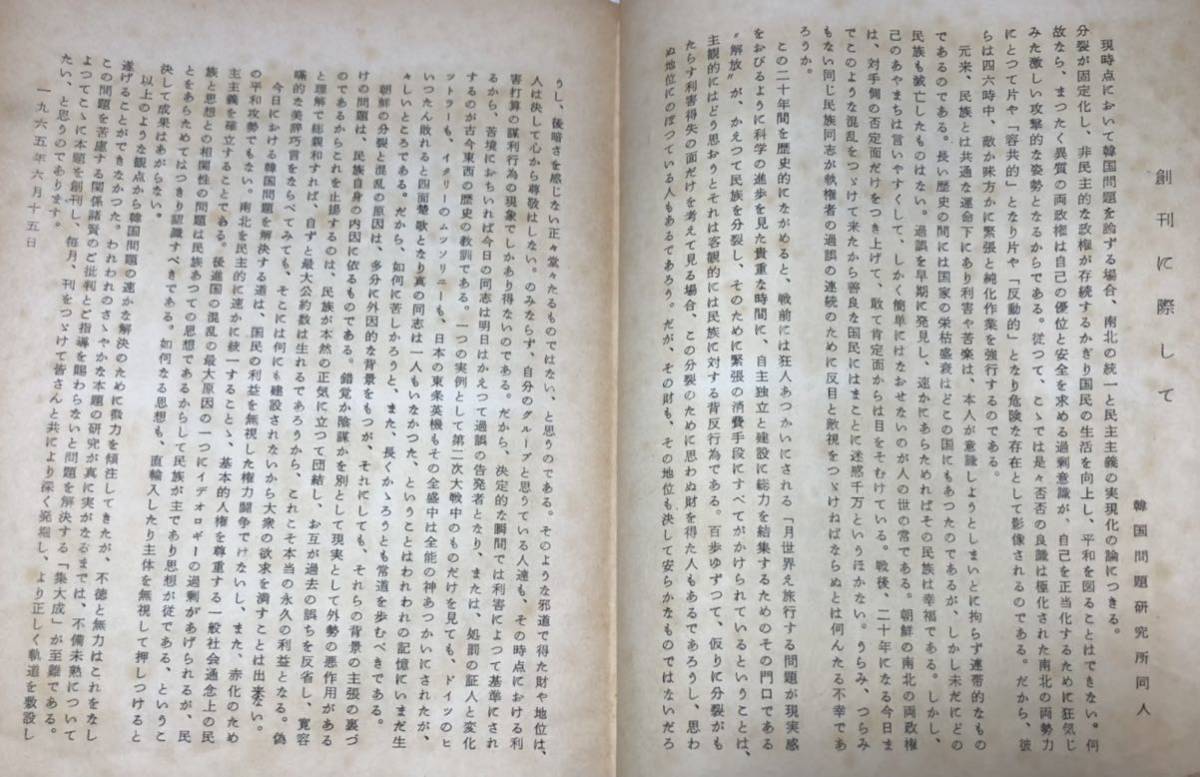 創刊に際して
韓国問題研究所同人
現時点において韓国問題を論ずる場合、南北の統一と民主主義の実現化の論につきる。
分裂が固定化し、非民主的な政権が存続するかぎり国民の生活を向上し、平和を図ることはできない。何
故なら、まつたく異質の両政権は自己の優位と安全を求める過剰意識が、自己を正当化するために狂気じ
みた激しい攻撃的な姿勢となるからである。従つて、こゝでは是々否否の良識は極化された南北の両勢力
にとつて片や「容共的」となり片や「反動的」となり危険な存在として影像されるのである。だから、彼
らは四六時中、敵か味方かに緊張と純化作業を強行するのである。
元来、民族とは共通な運命下にあり利害や苦楽は、本人が意識しようとしまいとに拘らず連帯的なもの
であるのである。長い歴史の間には国家の栄枯盛衰はどこの国にもあつたのであるが、しかし未だにどの
民族も滅亡したものはない。過誤を早期に発見し、速かにあらためればその民族は幸福である。しかし、
己のあやまちは言いやすくして、しかく簡単にはなおせないのが人の世の常である。朝鮮の南北の両政権
は、対手側の否定面だけをつき上げて、敢て肯定面からは目をそむけている。戦後、二十年になる今日ま
でこのような混乱をつゞけて来たから善良な国民にはまことに迷惑千万というほかない。うらみ、つらみ
もない同じ民族同志が執権者の過誤の連続のために反目と敵視をつゞけねばならぬとは何んたる不幸であ
ろうか。
この二十年間を歴史的にながめると、戦前には狂人あつかいにされる「月世界え旅行する問題が現実感
をおびるように科学の進歩を見た貴重な時間に、自主独立と建設に総力を結集するためのその門口である
〝解放〟が、かえつて民族を分裂し、そのために緊張の消費手段にすべてがかけられているということは、
主観的にはどう思おうとそれは客観的には民族に対する背反行為である。百歩ゆずつて、仮りに分裂がも
たらす利害得失の面だけを考えて見る場合、この分裂のために思わぬ財を得た人もあるであろうし、思わ
ぬ地位にのぼつている人もあるであろう。だが、その財も、その地位も決して安らかなものではないだろ
うし、後暗さを感じない正々堂々たるものではない、と思うのである。そのような邪道で得た財や地位は、
人は決して心から尊敬はしない。のみならず、自分のグループと思つている人達も、その時点における利
害打算の謀利行為の現象でしかあり得ないのである。だから、決定的な瞬間では利害によつて基準にされ
るから、苦境におちいれば今日の同志は明日はかえつて過誤の告発者となり、または、処罰の証人と変化
するのが古今東西の歴史の教訓である。一つの実例として第二次大戦中のものだけを見ても、ドイツのヒ
ットラーも、イタリーのムッソリニーも、日本の東条英機もその全盛中は全能の神あつかいにされたが、
いつたん敗れると四面楚歌となり真の同志は一人もいなかつた、ということはわれわれの記憶にいまだ生
々しいところである。だから、如何に苦しかろうと、また、長くかゝろうとも常道を歩むべきである。
朝鮮の分裂と混乱の原因は、多分に外因的な背景をもつが、それにしても、それらの背景の主張の裏づ
けの問題は、民族自身の内因に依るものである。錯覚か陰謀かを別として現実として外勢の悪作用がある
のであるからこれを止揚するのは、民族が本然の正気に立つて団結し、お互が過去の誤ちを反省し、寛容
と理解で総親和すれば、自ずと最大公約数は生れるであろうから、これこそ本当の永久の利益となる。偽
瞞的な美辞巧言をならべてみても、そこには何にも建設されないから大衆の欲求を満すことは出来ない。
今日における韓国問題を解決する道は、国民の利益を無視した権力闘争でけないし、また、赤化のため
の平和攻勢でもない。南北を民主的に速かに統一することゝ、基本的人権を尊重する一般社会通念上の民
主主義を確立することである。後進国の混乱の最大原因の一つにイデオロギーの過剰があげられるが、民
族と思想との相関性の問題は民族あつての思想であるからして民族が主であり思想が従である、というこ
とをあらためてはつきり認識すべきである。如何なる思想も、直輸入したり主体を無視して押しつけると
決して成果はあがらない。
以上のような観点から韓国問題の速かな解決のために微力を傾注してきたが、不徳と無力はこれをなし
遂げることができなかつた。われわれのさゝやかな本題の研究が真に実がなるまでは、不備未熟について
この問題を苦慮する関係諸賢のご批判とご指導を賜わらないと問題を解決する「集大成」が至難である。
よつてこゝに本題を創刊し、毎月、刊をつゞけて皆さんと共により深く発堀し、より正しく軌道を敷設し
たい、と思うのであります。
一九六五年六月十五日